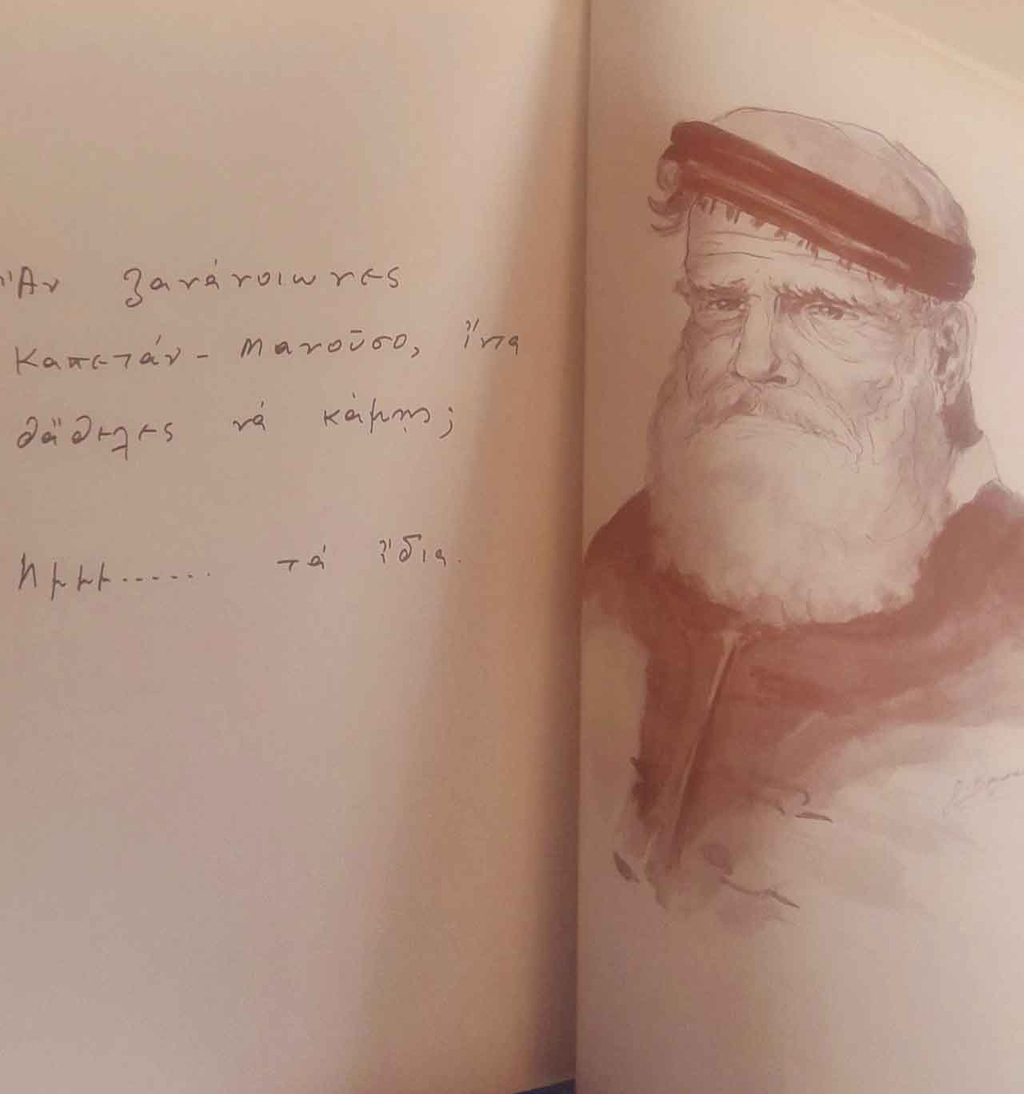 Ἄν ξανάνοιωνες
Καπετάν - Μανοῦσο, ἴντα
θἄθελες νά κάμῃς;
Ημμμ...... τά ἴδια.